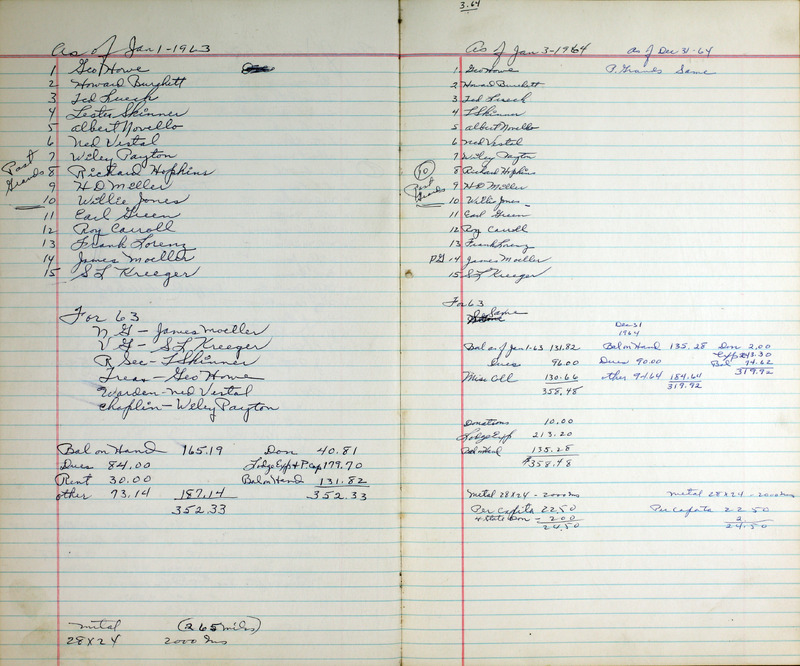 As of Jan 1-1963
1 Geo Howe
2 Howard Burghett
3 Ted Luech
4 Lester Skinner
5 Albert Novello
6 Ned Vestal
7 Wiley Payton
Past Grands 8 Richard Hopkins
9 H D Meller
10 Willie Jones
11 Earl Green
12 Roy Carroll
13 Frank Lorenz
14 James Moeller
15 S L Kreeger
For 63
N G - James Moeller
V G - S L Kreeger
R Sec - L Skinner
Treas - Geo Howe
Warden - Ned Vestal
Chaplin - Wiley Payton
Bal on Hand 165.19 Don 40.81
Dues 84.00 Lodge Exp + P. Cap 179.70
Rent 30.00 Bal on Hand 131.82
other 73.14 187.14 352.33
352.33
metal (265 mils)
28X24 2000 Ins
3.64
As of Jan 3-1964 as of Dec 31-64
1 Geo Howe P. Grands Same
2 Howard Burghett
3 Ted Luech
4 L Skinner
5 Albert Novello
6 Ned Vestal
7 Wiley Payton
10 Past Grands 8 Richard Hopkins
9 H D Meller
10 Willie Jones
11 Earl Green
12 Roy Carroll
13 Frank Lorenz
PG 14 James Moeller
15 S L Kreeger
For 63
Same
Dec 31
1964
Bal as of Jan 1-63 131.82 Bal on Hand 135.28 Don 2.00
Dues 96.00 Dues 90.00 Exp
Misc Oll 130.66 other 94.64 184.64 Bal 74.62
358.48 319.92 319.92
Donations 10.00
Lodge Exp 213.20
Bal on Hand 135.28
$358.48
Metal 28X24 - 2000 Ins Metal 28X24 - 2000 Ins
Per capita 22.50 Per capata 22 50
4 State Don - 2.00 2
24.50 24.50